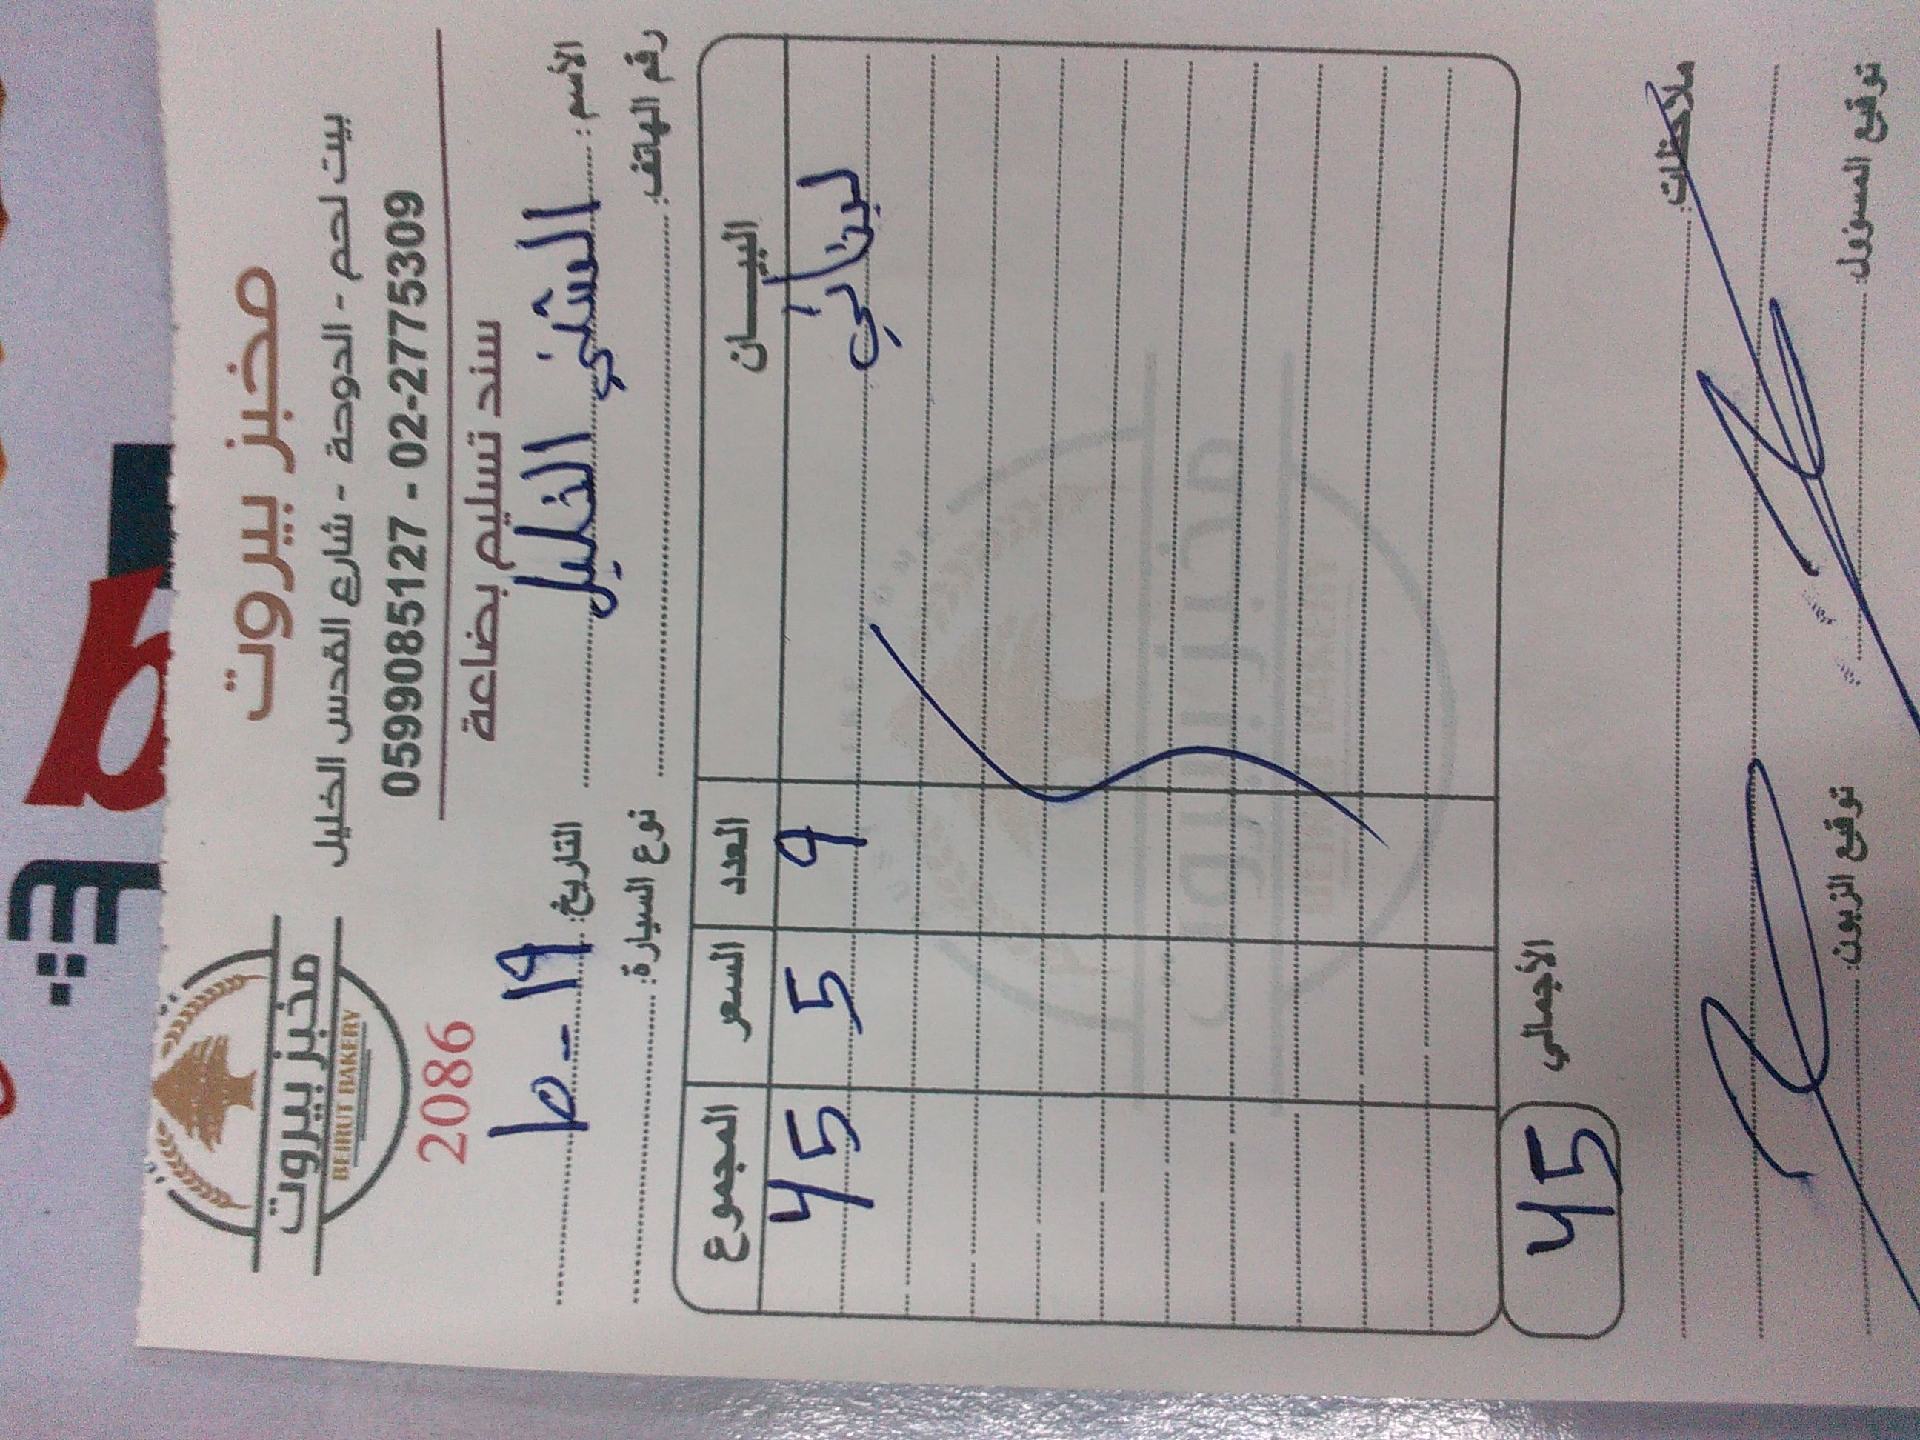 مخبز بيروت
بيت لحم - الدوحة - شارع القدس الخليل
0599085127 - 02-2775309
سند تسليم بضاعة
مخبز بيروت
BEIRUT BAKERY
2086
الأسم: الخليل التاريخ:
رقم الهاتف: نوع السيارة:
البيــان العدد السعر المجموع
لبناني 9 5 45
الأجمالي 45
ملاحظات:
توقيع المسؤول: توقيع الزبون: